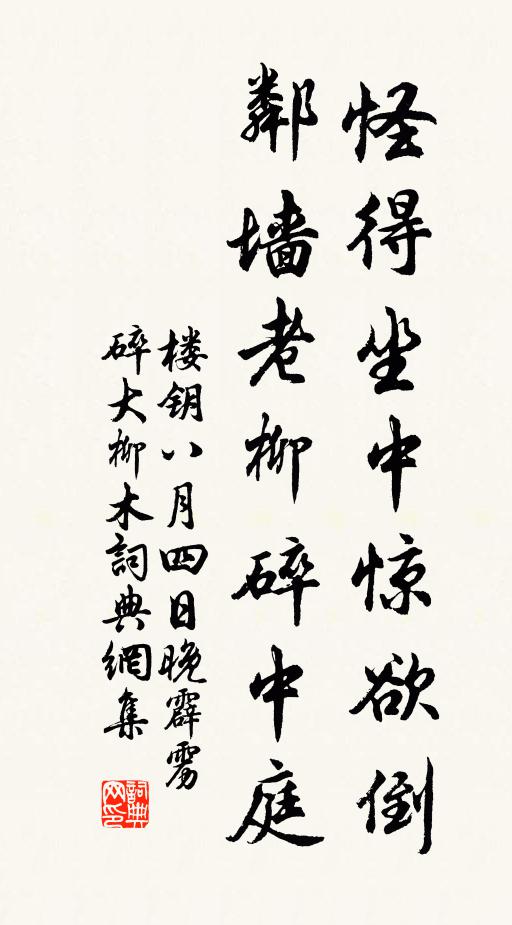 怪得坐中惊欲倒
鄰墙老柳碎中庭
楼钥八月四日晚霹雳
碎大柳木詞典網集
詞典
网印